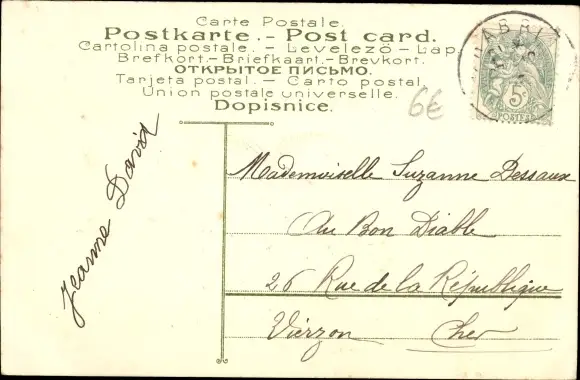 Carte Postale.
Postkarte. - Post card.
Cartolina postale. - Levelező - Lap.
Brefkort. - Briefkaart. - Brevkort.
ОТКРЫТОЕ ПИСЬМО.
Tarjeta postal. - Carto postal.
Union postale universelle.
Dopisnice.
6€
5c
POSTES
Jeanne David
Mademoiselle Suzanne Dessaux
Au Bon Diable
26 Rue de la République
Vierzon Cher